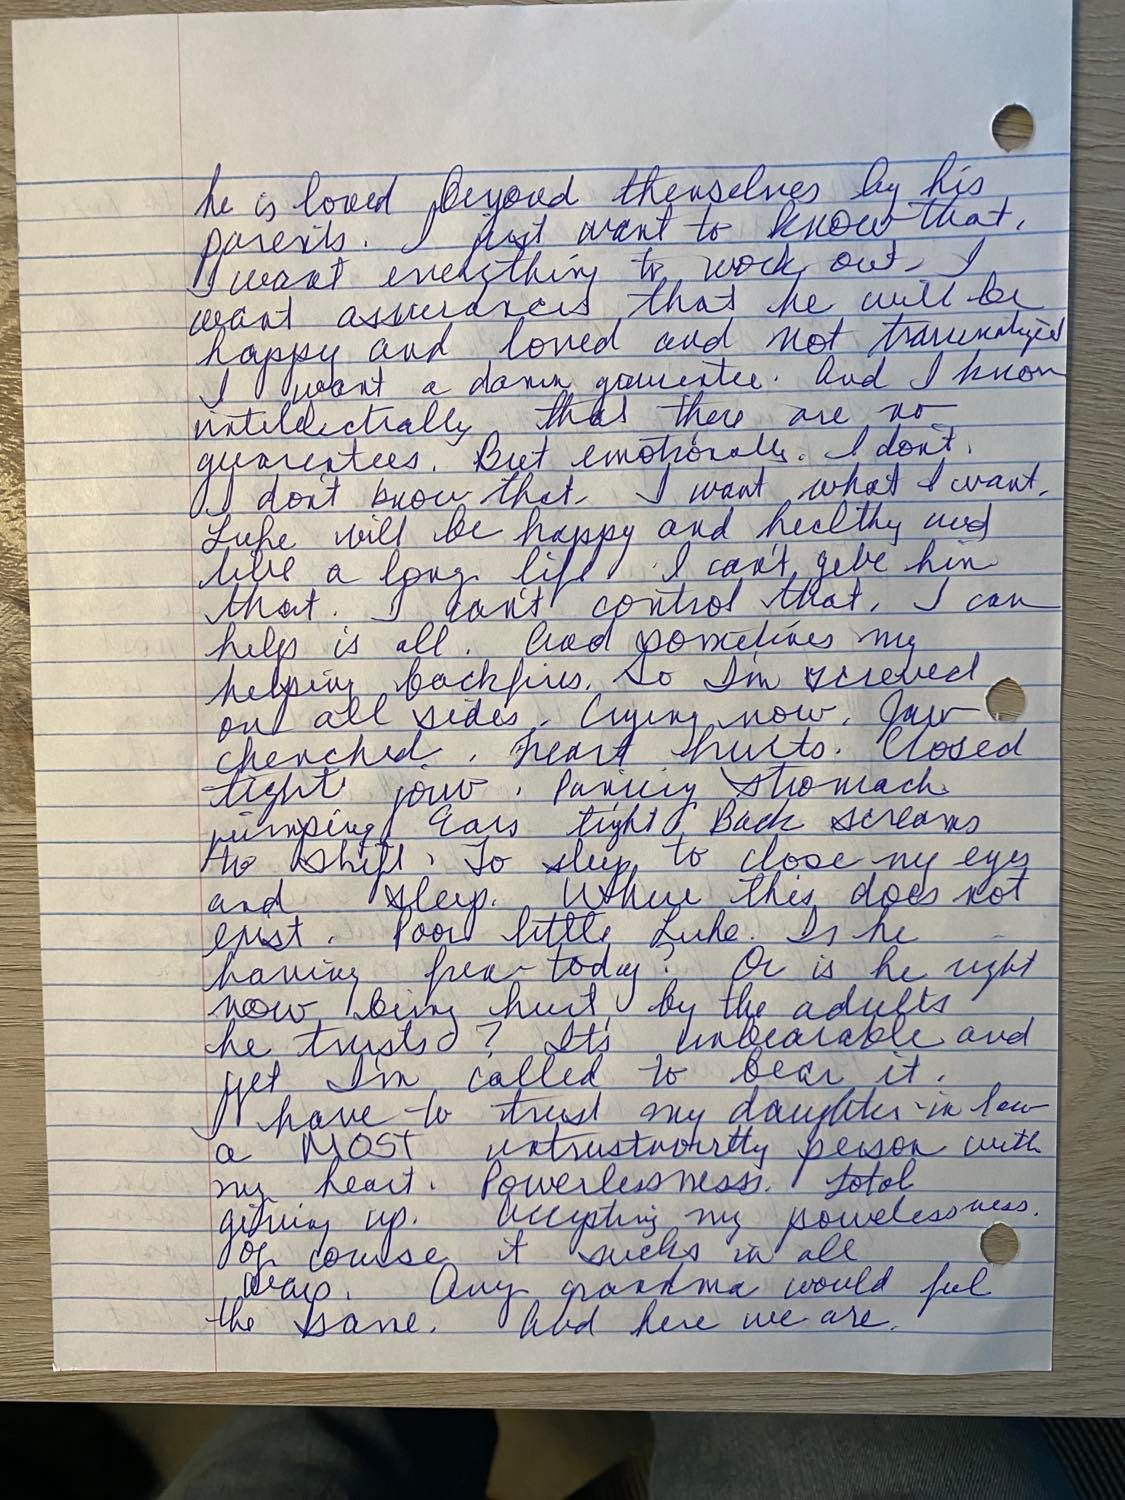 he is loved beyond themselves by his
parents. I just want to know that.
I want everything to work out. I
want assurances that he will be
happy and loved and not traumatized
I want a damn guarentee. And I know
intellectually that there are no
guarentees. But emotionally. I don't.
I don't know that. I want what I want.
Luke will be happy and healthy and
live a long life. I can't give him
that. I can't control that. I can
help is all. And sometimes my
helping backfires. So I'm screwed
on all sides. Crying now. Jaw
clenched. Heart hurts. Closed
tight jaw. Panicky stomach
jumping Ears tight Back screams
to shift. To sleep to close my eyes
and sleep. Where this does not
exist. Poor little Luke. Is he
having fun today? Or is he right
now being hurt by the adults
he trusts? It's unbearable and
yet I'm called to bear it.
I have to trust my daughter-in law
a MOST untrustworthy person with
my heart. Powerlessness. Total
giving up. Accepting my powelessness.
Of course it sucks in all
ways. Any grandma would feel
the same. And here we are.